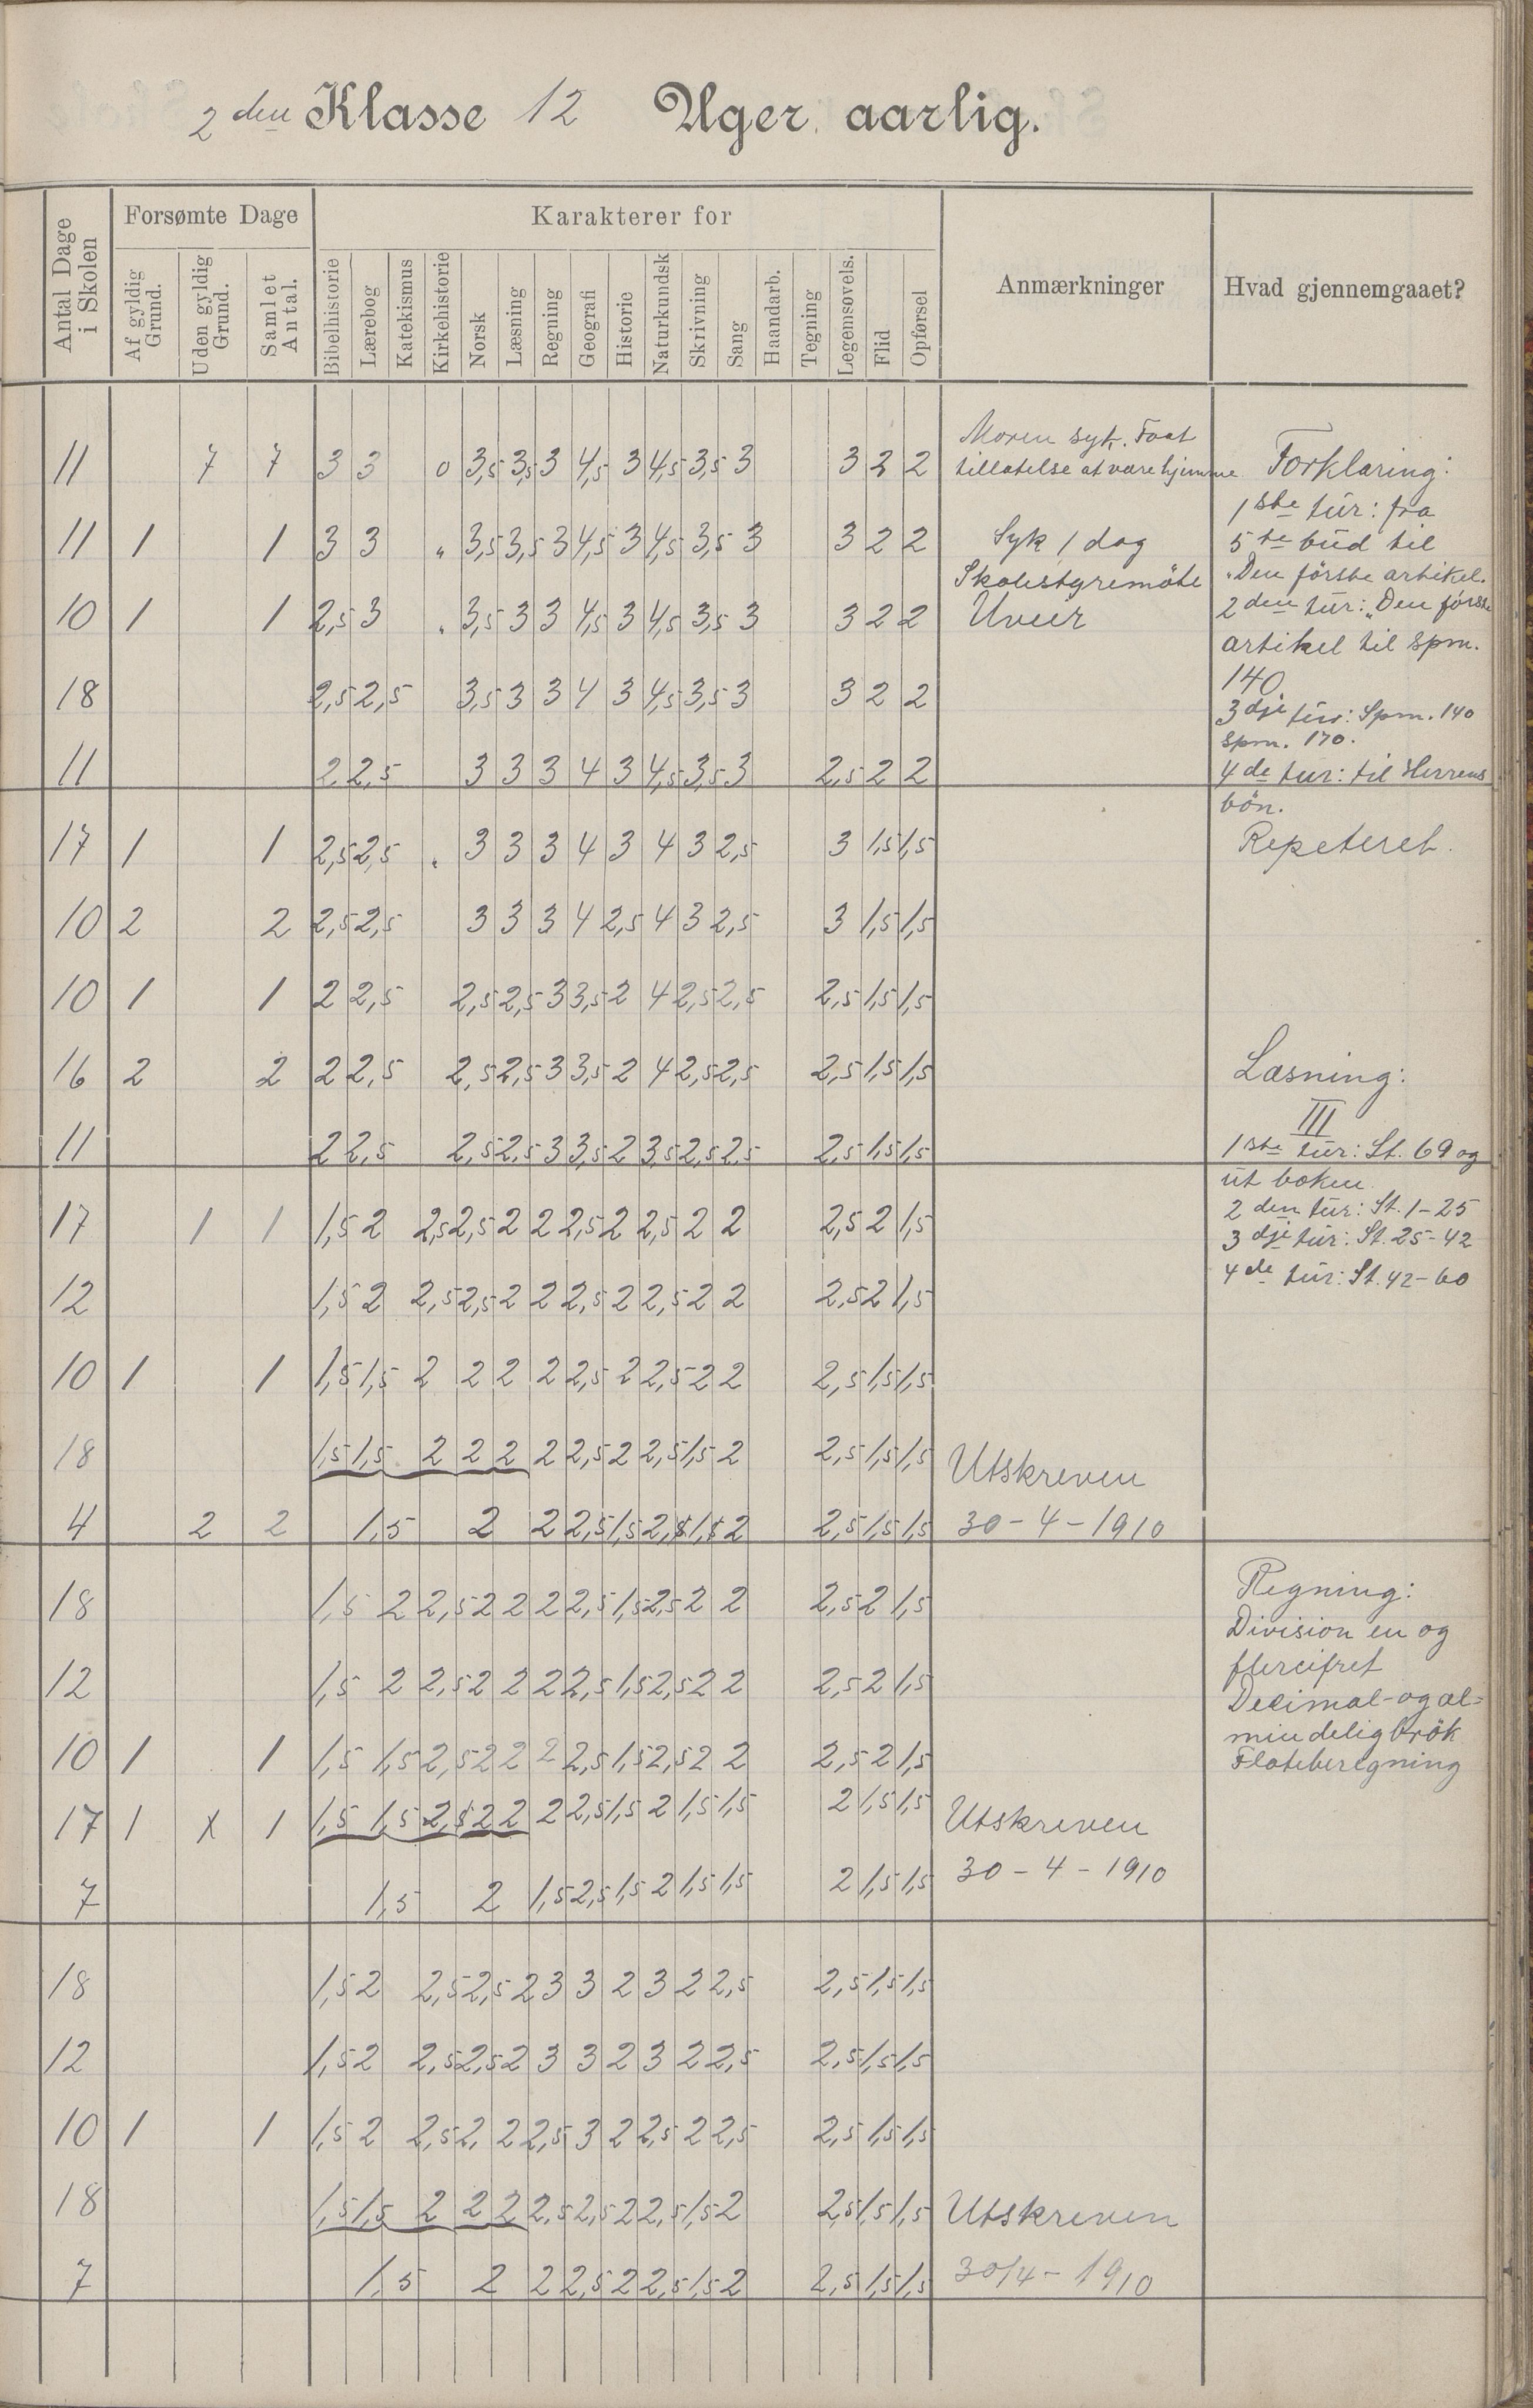 2 den Klasse 12 Uger aarlig.
Antal Dage i Skolen
Forsømte Dage
Af gyldig Grund.
Uden gyldig Grund.
Samlet Antal.
Karakterer for
Bibelhistorie
Lærebog
Katekismus
Kirkehistorie
Norsk
Læsning
Regning
Geografi
Historie
Naturkundsk
Skrivning
Sang
Haandarb.
Tegning
Legemsøvels.
Flid
Opførsel
Anmærkninger
Hvad gjennemgaaet?
11 7 7 3 3 0 3,5 3,5 3 4,5 3 4,5 3,5 3 3 2 2
11 1 1 3 3 „ 3,5 3,5 3 4,5 3 4,5 3,5 3 3 2 2
10 1 1 2,5 3 „ 3,5 3 3 4,5 3 4,5 3,5 3 3 2 2
18 2,5 2,5 3,5 3 3 4 3 4,5 3,5 3 3 2 2
11 2 2,5 3 3 3 4 3 4,5 3,5 3 2,5 2 2
17 1 1 2,5 2,5 „ 3 3 3 4 3 4 3 2,5 3 1,5 1,5
10 2 2 2,5 2,5 3 3 3 4 2,5 4 3 2,5 3 1,5 1,5
10 1 1 2 2,5 2,5 2,5 3 3,5 2 4 2,5 2,5 2,5 1,5 1,5
16 2 2 2 2,5 2,5 2,5 3 3,5 2 4 2,5 2,5 2,5 1,5 1,5
11 2 2,5 2,5 2,5 3 3,5 2 3,5 2,5 2,5 2,5 1,5 1,5
17 1 1 1,5 2 2,5 2,5 2 2 2,5 2 2,5 2 2 2,5 2 1,5
12 1,5 2 2,5 2,5 2 2 2,5 2 2,5 2 2 2,5 2 1,5
10 1 1 1,5 1,5 2 2 2 2 2,5 2 2,5 2 2 2,5 1,5 1,5
18 1,5 1,5 2 2 2 2 2,5 2 2,5 1,5 2 2,5 1,5 1,5
4 2 2 1,5 2 2 2,5 1,5 2,5 1,5 2 2,5 1,5 1,5
18 1,5 2 2,5 2 2 2 2,5 1,5 2,5 2 2 2,5 2 1,5
12 1,5 2 2,5 2 2 2 2,5 1,5 2,5 2 2 2,5 2 1,5
10 1 1 1,5 1,5 2,5 2 2 2 2,5 1,5 2,5 2 2 2,5 2 1,5
17 1 x 1 1,5 1,5 2,5 2 2 2 2,5 1,5 2 1,5 1,5 2 1,5 1,5
7 1,5 2 1,5 2,5 1,5 2 1,5 1,5 2 1,5 1,5
18 1,5 2 2,5 2,5 2 3 3 2 3 2 2,5 2,5 1,5 1,5
12 1,5 2 2,5 2,5 2 3 3 2 3 2 2,5 2,5 1,5 1,5
10 1 1 1,5 2 2,5 2, 2 2,5 3 2 2,5 2 2,5 2,5 1,5 1,5
18 1,5 1,5 2 2 2 2,5 2,5 2 2,5 1,5 2 2,5 1,5 1,5
7 1,5 2 2 2,5 2 2,5 1,5 2 2,5 1,5 1,5
Moren syk. Faat
tillatelse at være hjemme
Syk 1 dag
Skolestyremöte
Uveir
Utskreven
30-4-1910
Utskreven
30-4-1910
Utskreven
30/4-1910
Forklaring:
1ste tur: fra
5te bud til
„Den förste artikel.
2den tur: „Den förste
artikel til spm.
140.
3dje tur: Spm. 140
spm. 170.
4de tur: til Herrens
bön.
Repeteret.
Læsning:
III
1ste tur: St. 69 og
ut boken
2den tur: St. 1-25
3dje tur: St. 25-42
4de tur: St. 42-60
Regning:
Division en og
flercifret
Decimal- og al=
mindelig brök
Flateberegning